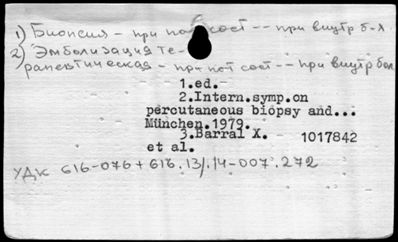 1) Биопсия - при пат сост -- при внутр б-х
2) Эмболизация те-
рапевтическая - при пат сост -- при внутр бол
1.ed.
2.Intern.symp.on
percutaneous biopsy and...
München.1979.
3.Barral X.
1017842
et al.
УДК 616-076+616.13/.14-007.272